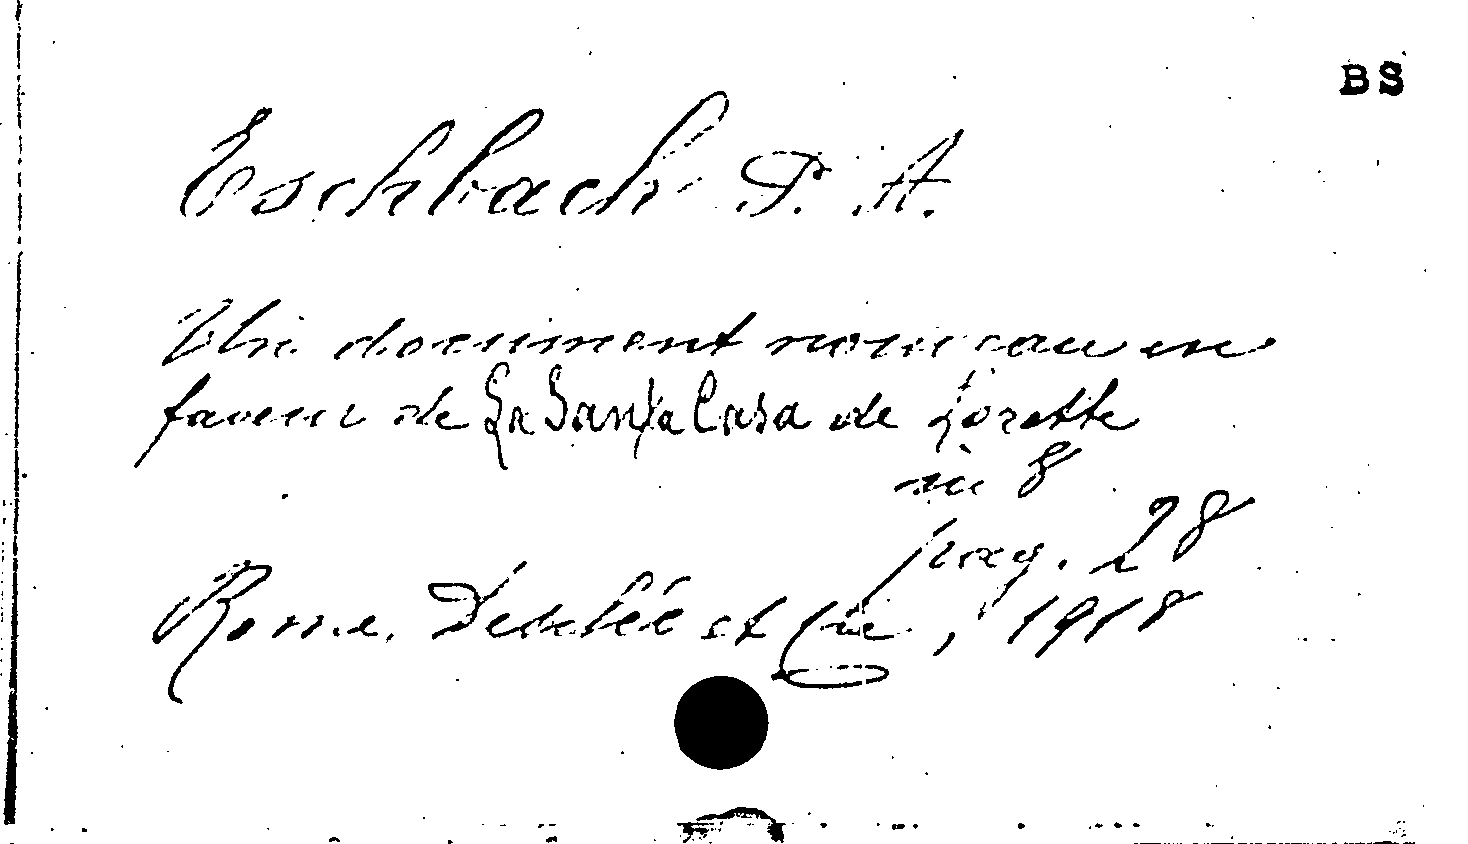 BS
Eschbach P. A.
Un document nouveau en
faveur de La Santa Casa de Lorette
in 8
pag. 28
Rome, Desclée et Cie, 1918